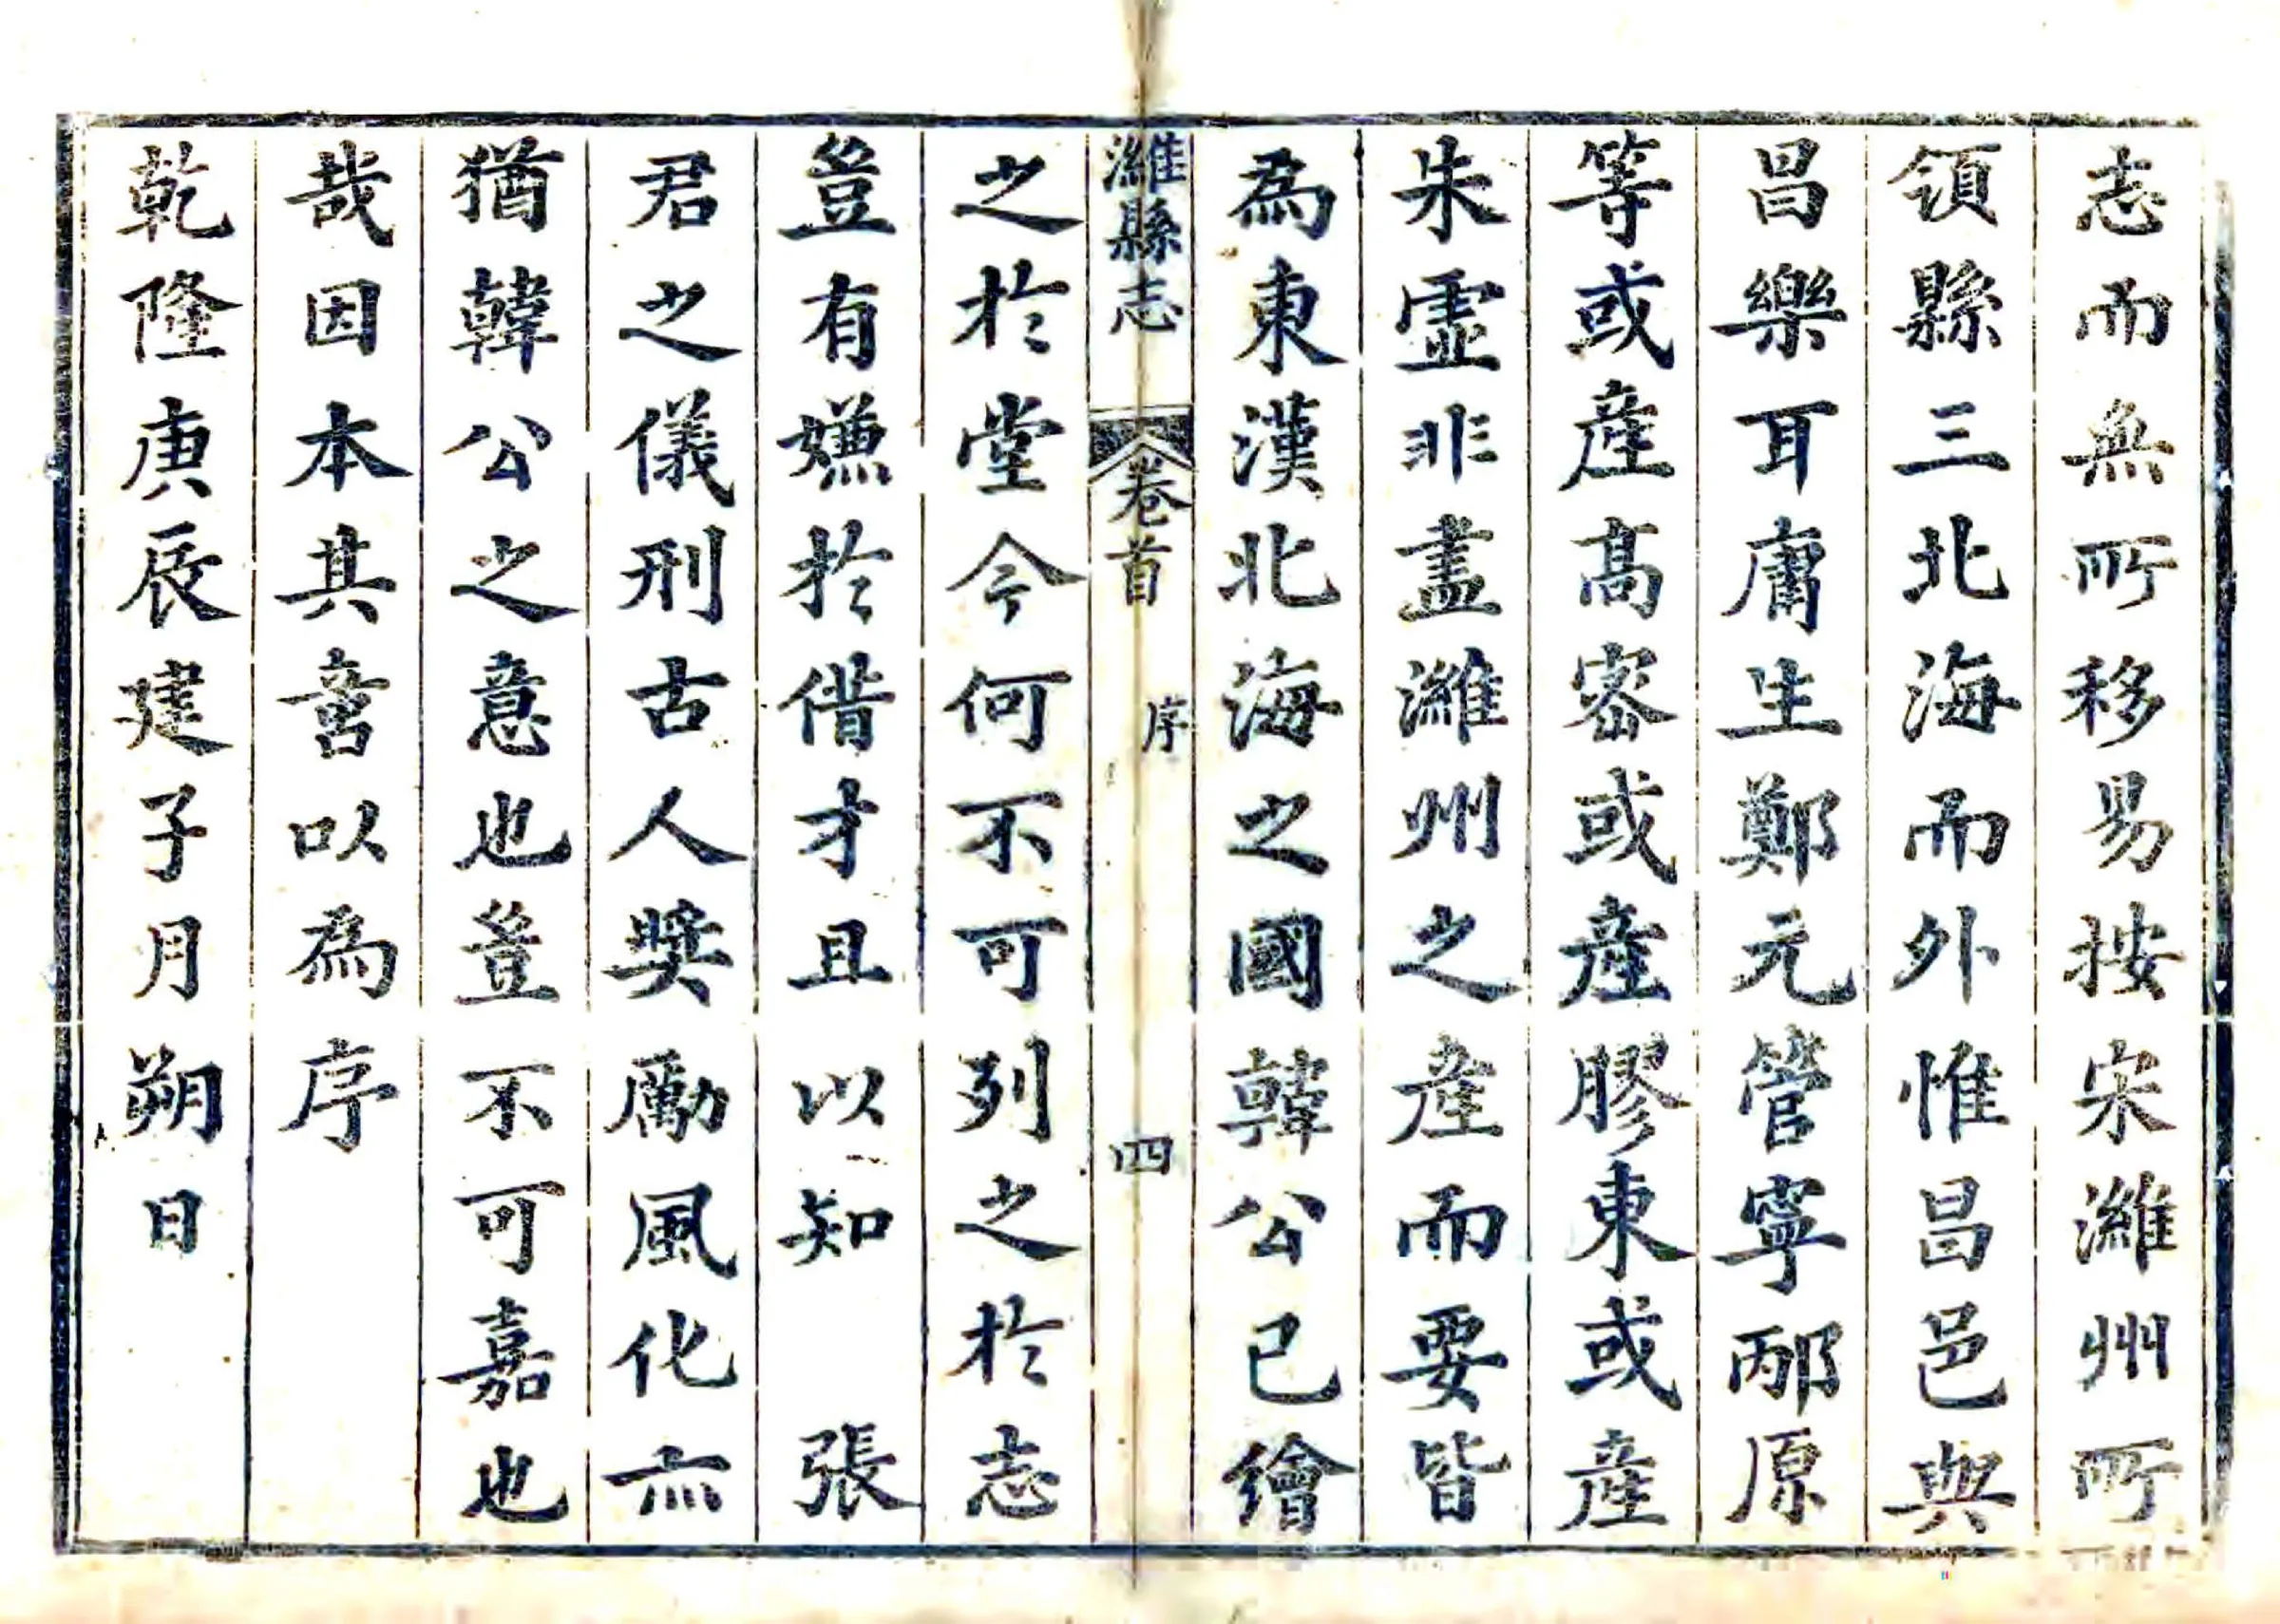 志而無所移易按宋濰州所
領縣三北海而外惟昌邑與
昌樂耳庸生鄭元管寧邴原
等或產高密或產膠東或產
朱虛非盡濰州之產而要皆
為東漢北海之國韓公已繪
濰縣志 卷首 序 四
之於堂今何不可列之於志
豈有嫌於借才且以知 張
君之儀刑古人獎勵風化亦
猶韓公之意也豈不可嘉也
哉因本其言以為序
乾隆庚辰建子月朔日